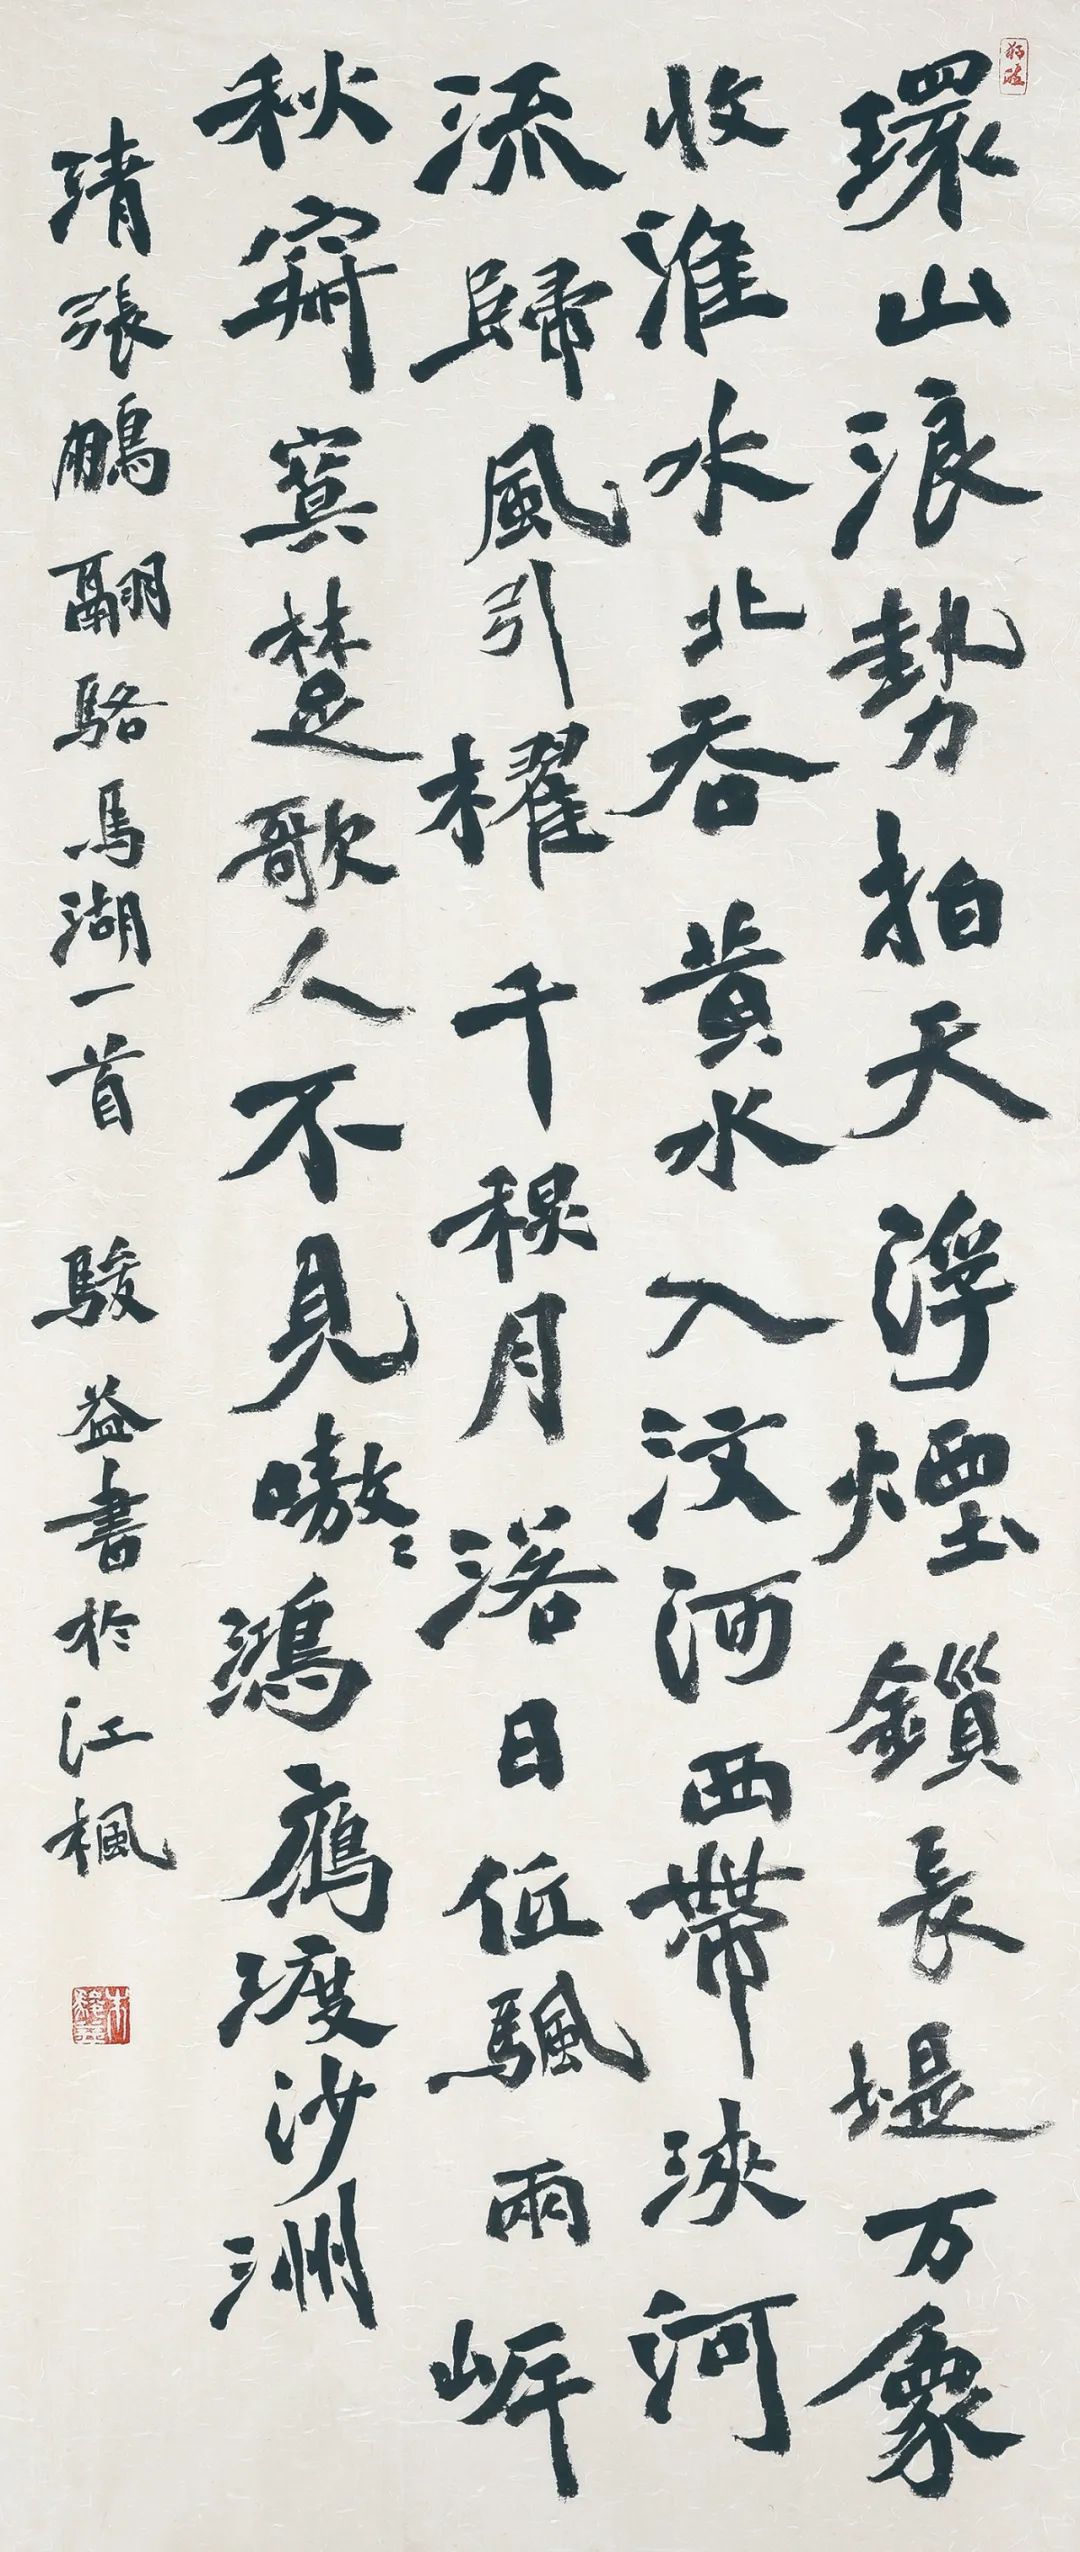 環山浪勢拍天浮煙鎖長堤万象
收淮水北吞黄水入汶河西帶浹河
流歸風引櫂千月落日低颿兩岸
秋寂寞楚歌人不見嗷〻鴻鴈渡沙洲
清張鵬翮駱馬湖一首 駿益書於江楓